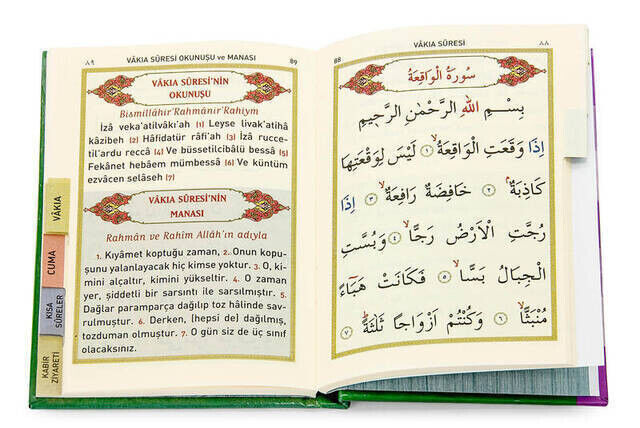 ٨٩ VÂKIA SÛRESİ OKUNUŞU ve MANASI 89
VÂKIA SÛRESİ'NİN
OKUNUŞU
Bismillâhir'Rahmânir'Rahıym
İzâ veka'atilvâkı'ah (1) Leyse livak'atihâ
kâzibeh (2) Hâfidatür râfi'ah (3) İzâ rucce-
til'ardu reccâ (4) Ve büssetilcibâlü bessâ (5)
Fekânet hebâem mümbessâ (6) Ve küntüm
ezvâcen selâseh (7)
VÂKIA SÛRESİ'NİN
MANASI
Rahmân ve Rahîm Allâh'ın adıyla
1. Kıyâmet koptuğu zaman, 2. Onun kopu-
şunu yalanlayacak hiç kimse yoktur. 3. O, ki-
mini alçaltır, kimini yükseltir. 4. O zaman
yer, şiddetli bir sarsıntı ile sarsılmıştır. 5.
Dağlar paramparça dağılıp toz hâlinde sav-
rulmuştur. 6. Derken, (hepsi de) dağılmış,
tozduman olmuştur. 7. O gün siz de üç sınıf
olacaksınız.
VÂKIA
CUMA
KISA
SÛRELER
KABİR
ZİYARETİ
88 VÂKIA SÛRESİ ٨٨
سُورَةُ الْوَاقِعَةِ
بِسْمِ اللهِ الرَّحْمٰنِ الرَّحِيمِ
اِذَا وَقَعَتِ الْوَاقِعَةُ ۙ ١ لَيْسَ لِوَقْعَتِهَا
كَاذِبَةٌ ۘ ٢ خَافِضَةٌ رَافِعَةٌ ۙ ٣ اِذَا
رُجَّتِ الْاَرْضُ رَجًّا ۙ ٤ وَبُسَّتِ
الْجِبَالُ بَسًّا ۙ ٥ فَكَانَتْ هَبَٓاءً
مُنْبَثًّا ۙ ٦ وَكُنْتُمْ اَزْوَاجًا ثَلٰثَةً ۜ ٧